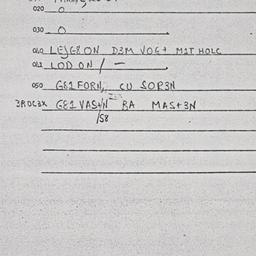 020 0
030 0
040 LEJG8 ON D3M VOG+ M1T HOLC
041 LOD ON / –
050 G81 FORN, CU SOP3N
3ROC3X G81 VAS+N BA MAS+3N
/58